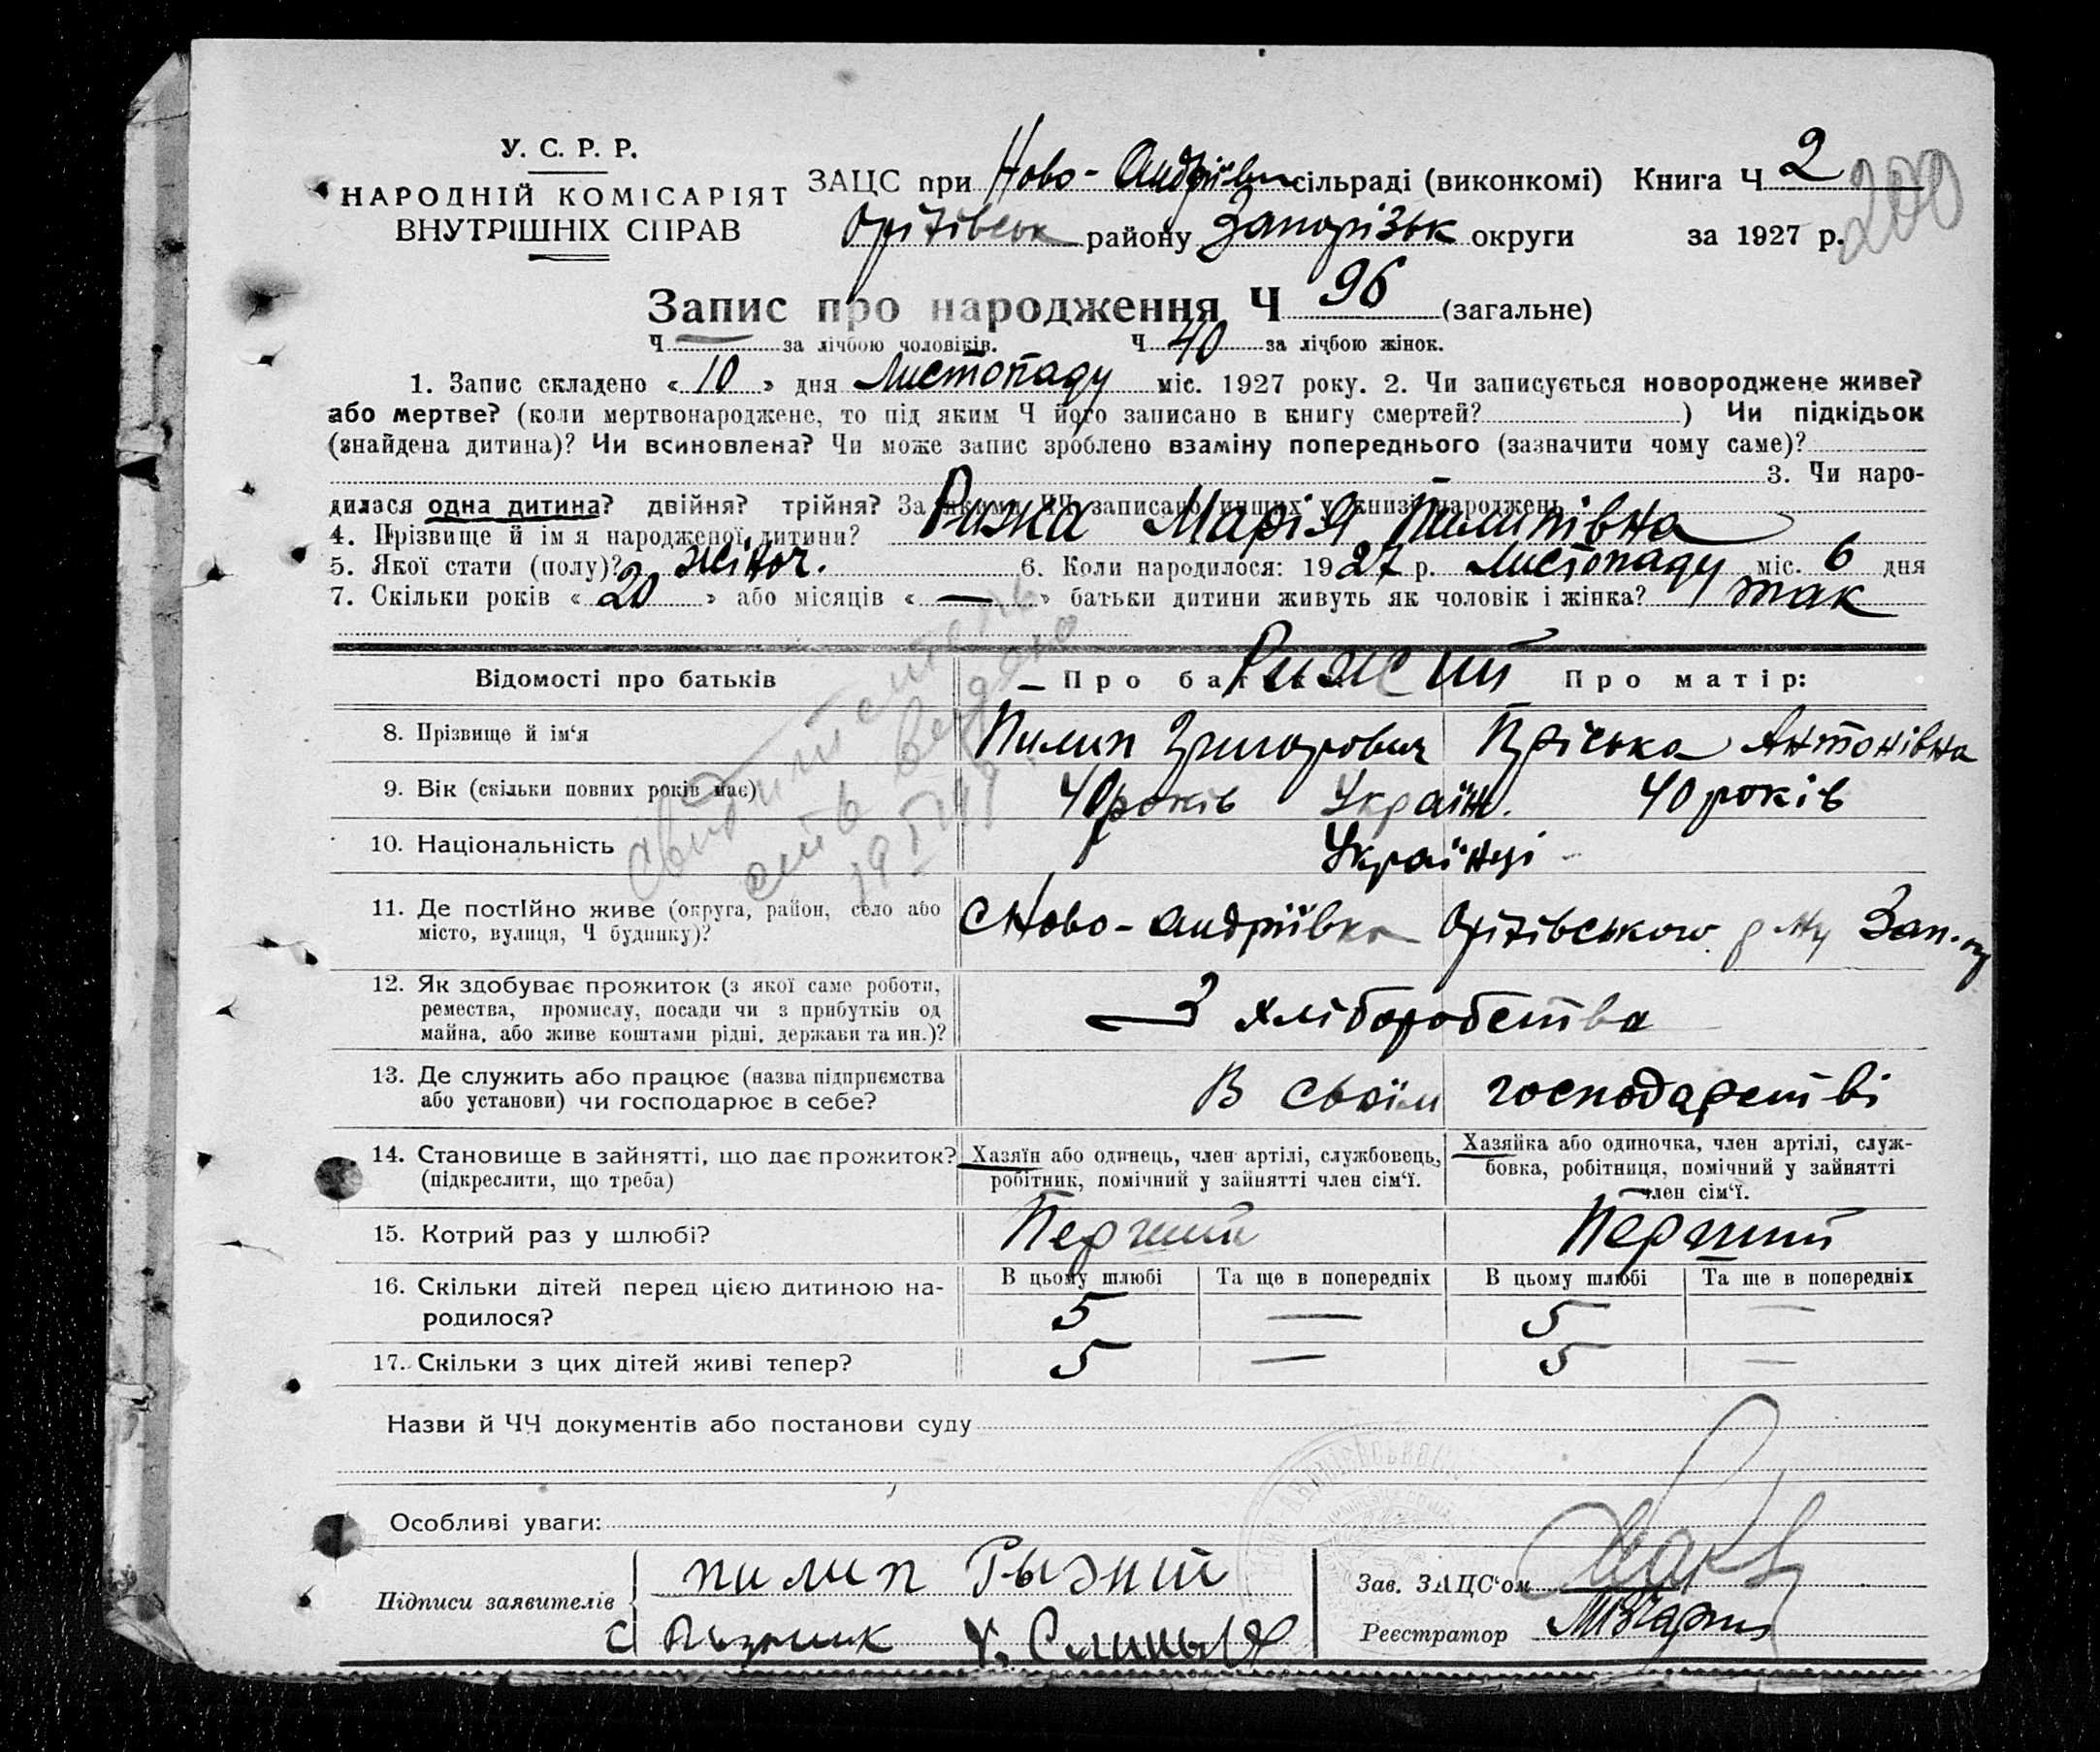 У. С. Р. Р.
НАРОДНІЙ КОМІСАРІЯТ
ВНУТРІШНІХ СПРАВ
ЗАЦС при Ново-Андріївськ сільраді (виконкомі) Книга Ч 2
200
Оріхівськ району Запорізьк округи за 1927 р.
Запис про народження Ч 96 (загальне)
Ч — за лічбою чоловіків. Ч 40 за лічбою жінок.
1. Запис складено « 10 » дня Листопаду міс. 1927 року. 2. Чи записується новороджене живе?
або мертве? (коли мертвонароджене, то під яким Ч його записано в книгу смертей? ) Чи підкідьок
(знайдена дитина)? Чи всиновлена? Чи може запис зроблено взаміну попереднього (зазначити чому саме)?
3. Чи наро-
дилася одна дитина? двійня? трійня? За якими ЧЧ записано инших у книзі народжень
4. Прізвище й ім я народженої дитини? Рижа Марія Пилипівна
5. Якої стати (полу)? жіноч. 6. Коли народилося: 1927 р. Листопаду міс. 6 дня
7. Скільки років « 20 » або місяців « — » батьки дитини живуть як чоловік і жінка? так
Відомості про батьків Про батька Рижий Про матір:
8. Прізвище й ім'я Пилип Григорович Пріська Антонівна
9. Вік (скільки повних років має) 40 років Україн. 40 років
10. Національність Українці
11. Де постійно живе (округа, район, село або
місто, вулиця, Ч будинку)?
с Ново-Андріївка Оріхівського р-ну Зап. о
12. Як здобуває прожиток (з якої саме роботи,
ремества, промислу, посади чи з прибутків од
майна, або живе коштами рідні, держави та ин.)?
З хліборобства
13. Де служить або працює (назва підприємства
або установи) чи господарює в себе?
В своїм господарстві
14. Становище в зайнятті, що дає прожиток?
(підкреслити, що треба)
Хазяїн або одинець, член артілі, службовець,
робітник, помічний у зайнятті член сім'ї.
Хазяйка або одиночка, член артілі, служ-
бовка, робітниця, помічний у зайнятті
член сім'ї.
15. Котрий раз у шлюбі? Перший Перший
16. Скільки дітей перед цією дитиною на-
родилося?
В цьому шлюбі Та ще в попередніх В цьому шлюбі Та ще в попередніх
5 — 5 —
17. Скільки з цих дітей живі тепер? 5 — 5 —
Назви й ЧЧ документів або постанови суду
Особливі уваги:
Підписи заявителів
пилип Рыжий
Зав. ЗАЦС'ом
Реєстратор